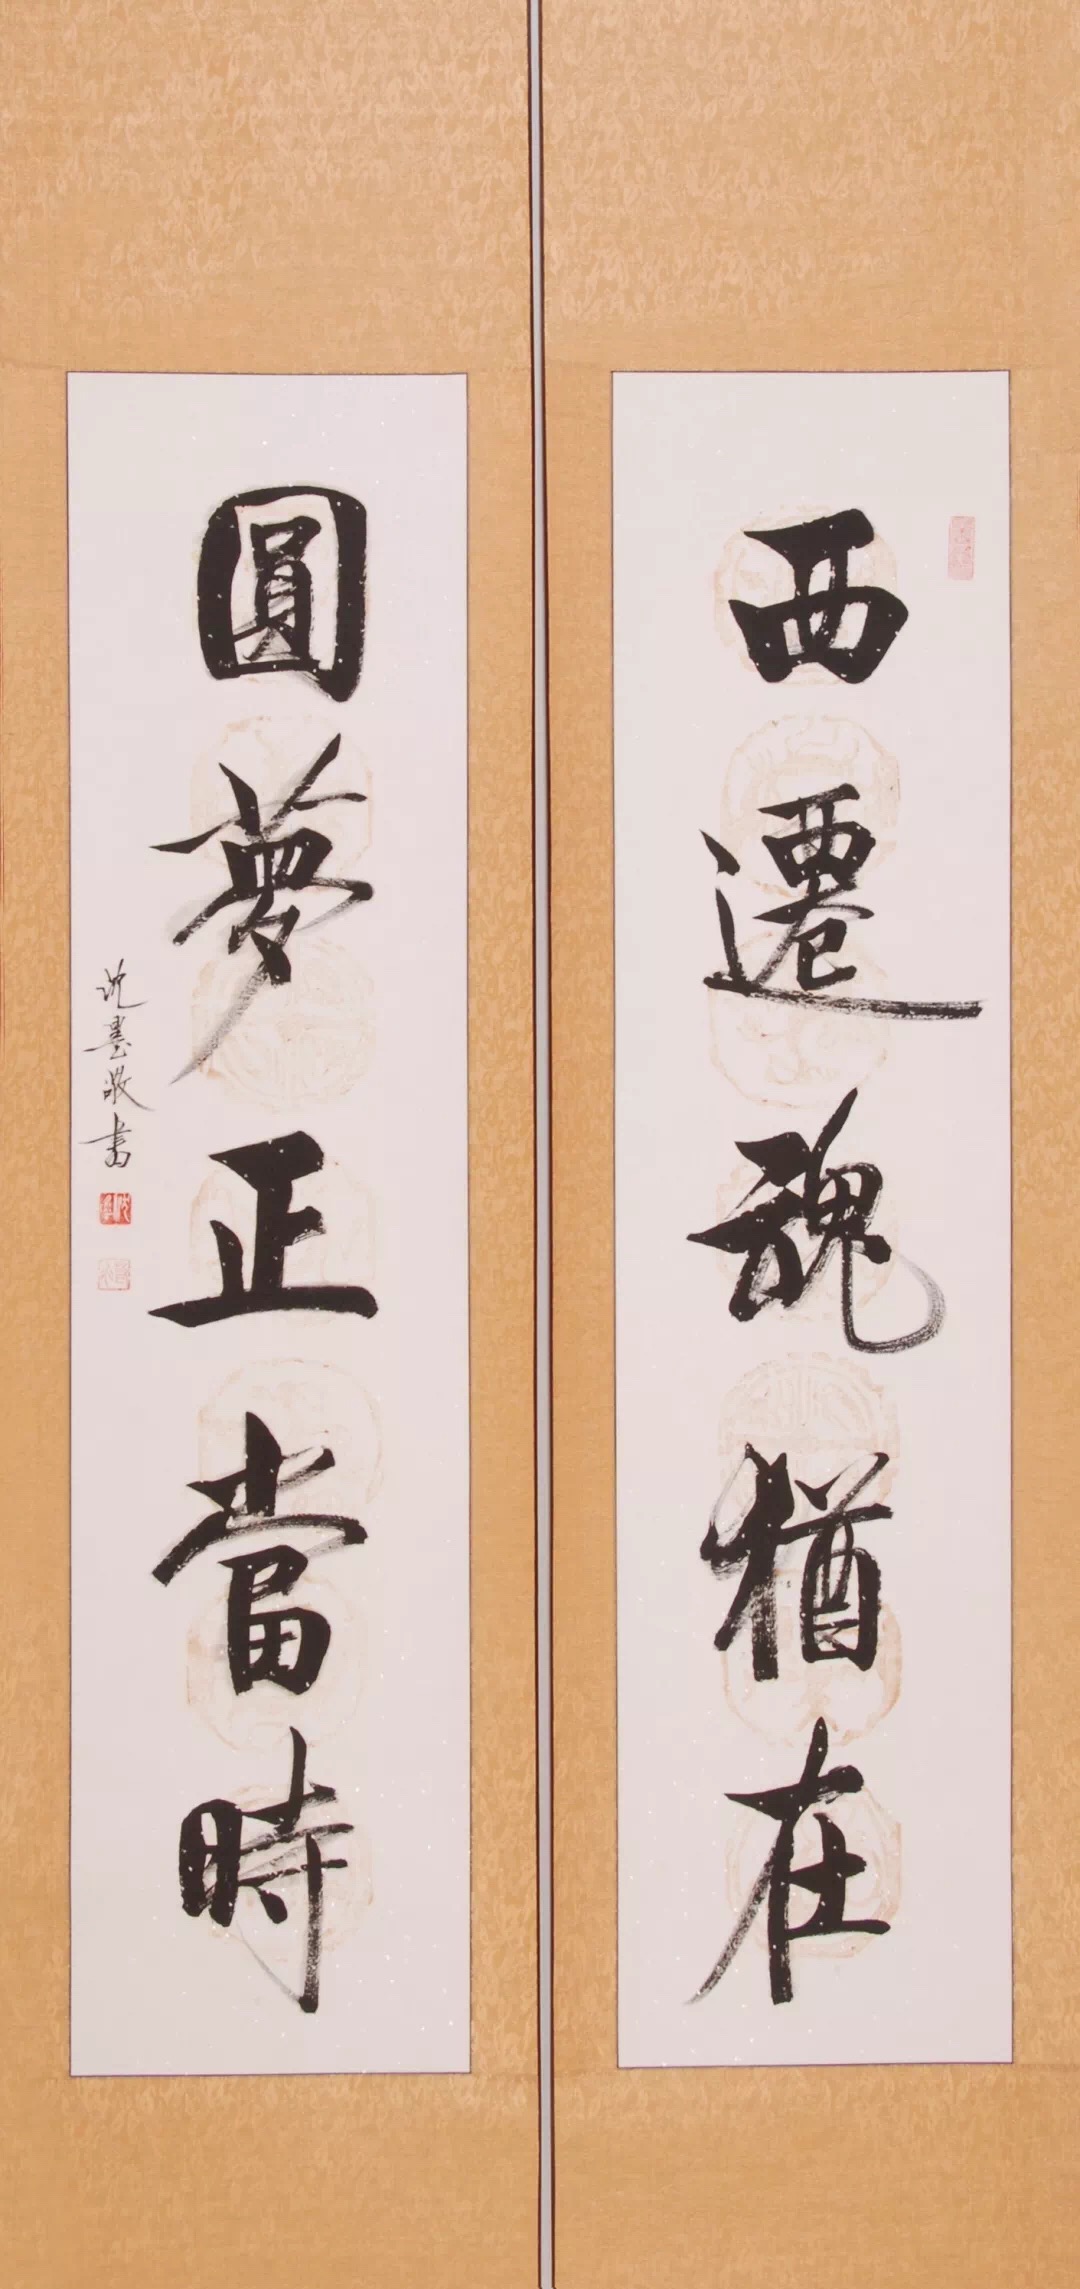 西遷魂猶在
圓夢正當時
沈墨敬書